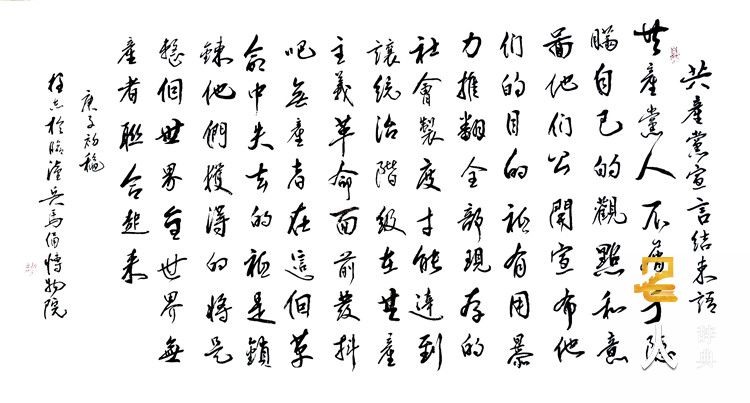 共產黨宣言結束語
共產黨人不屑于隱
瞞自己的觀點和意
啚他们公開宣布他
们的目的祗有用暴
力推翻全部現存的
社會製度才能達到
讓統治階級在共產
主義革命面前發抖
吧無產者在這個革
命中失去的祗是鎖
鍊他們獲得的將是
整個世界全世界無
產者聯合起来
庚子初
於臨潼兵馬俑博物院
辞典